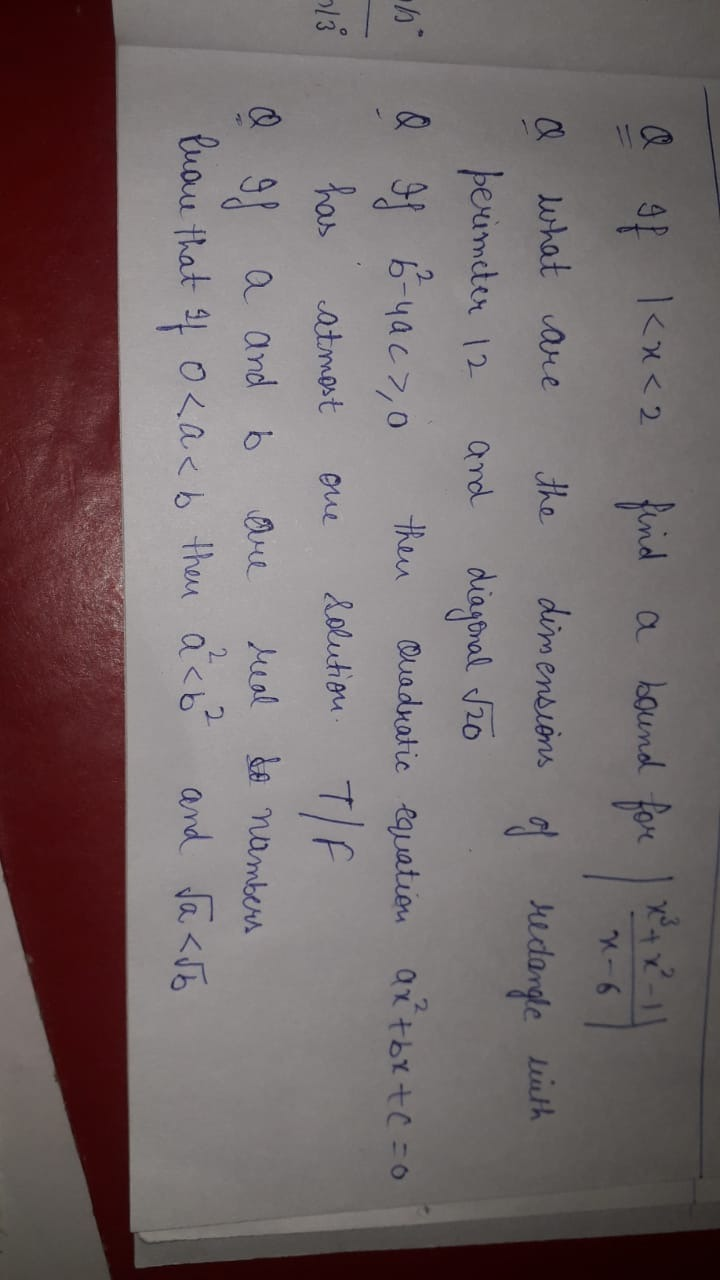 Q If 1<x<2 find a bound for |x³+x²-1/x-6|
Q what are the dimensions of rectangle with
perimeter 12 and diagonal √20
Q If b²-4ac≥0 then quadratic equation ax²+bx+c=0
has atmost one solution. T/F
Q If a and b are real numbers
Prove that If 0<a<b then a²<b² and √a<√b